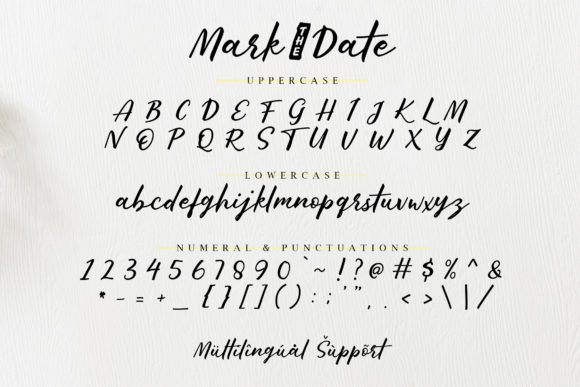 Mark THE Date
UPPERCASE
A B C D E F G H I J K L M
N O P Q R S T U V W X Y Z
LOWERCASE
abcdefghijklmnopqrstuvwxyz
NUMERAL & PUNCTUATIONS
1 2 3 4 5 6 7 8 9 0 ` ~ ! ? @ # $ % ^ &
* - = + _ { } [ ] ( ) : ; ' " , . < > \ | /
Mültîlîngúàl Šùppõrt